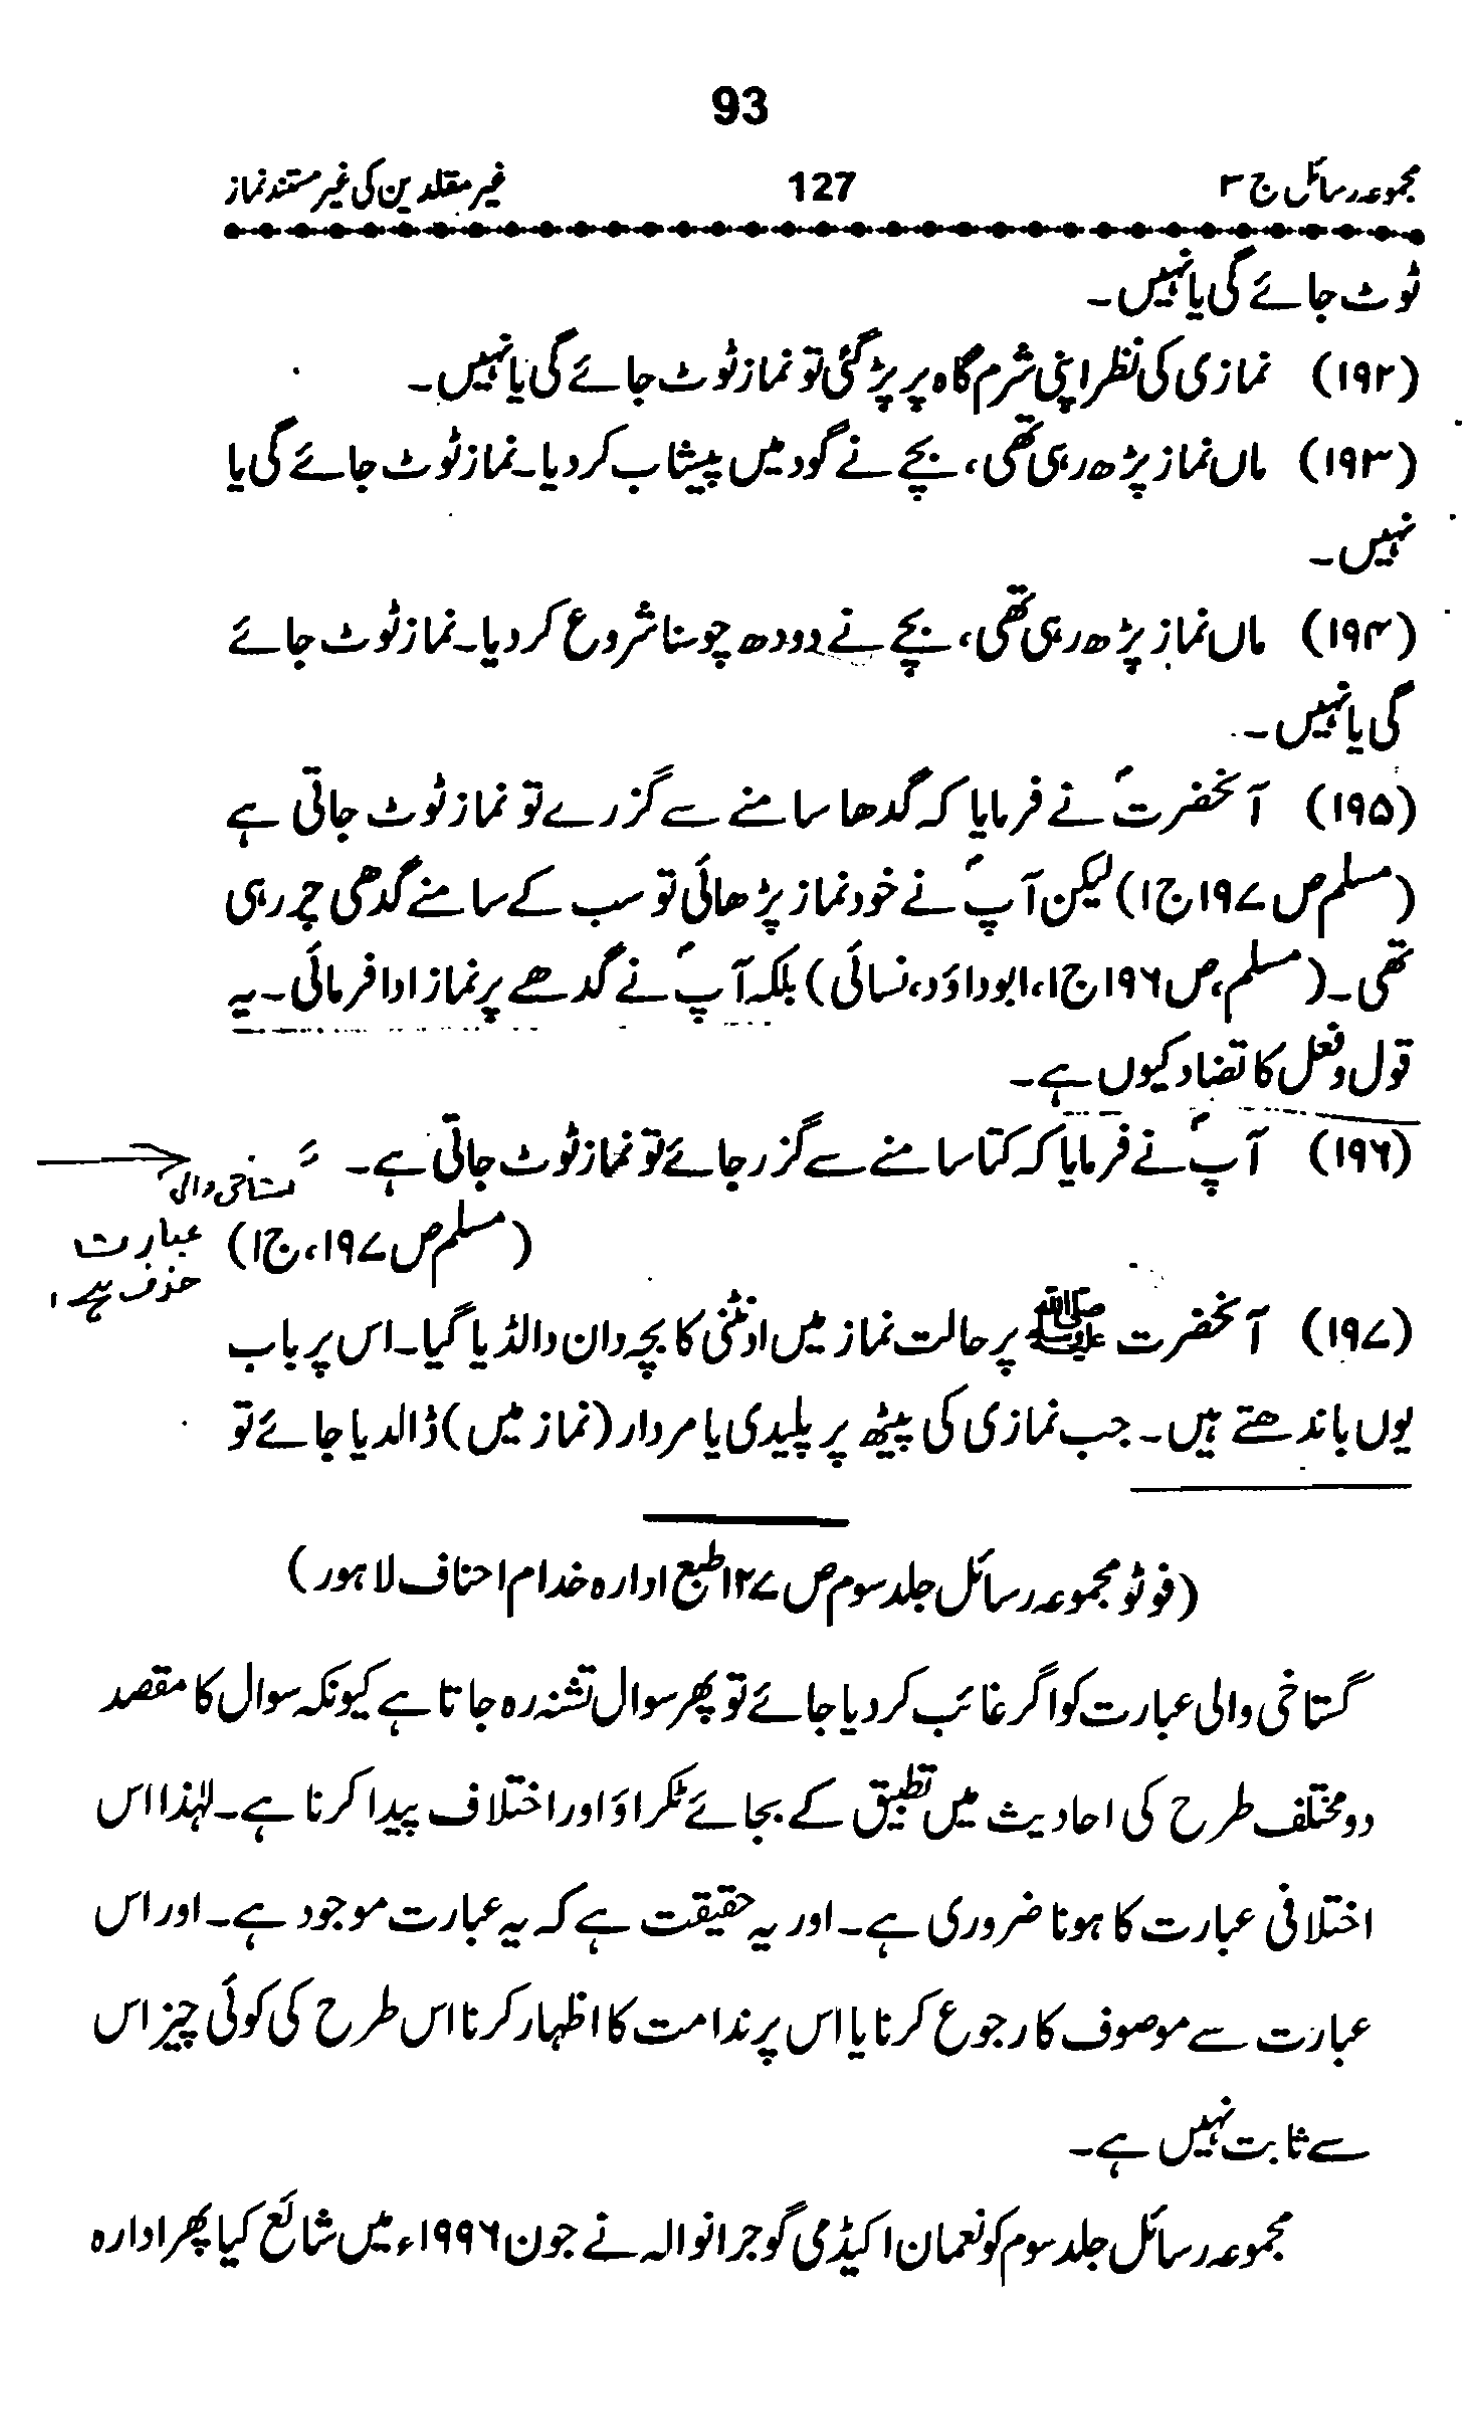 93
مجموعہ رسائل ج ۳ 127 غیر مقلدین کی غیر مستند نماز
ٹوٹ جائے گی یا نہیں۔
(۱۹۲) نمازی کی نظر اپنی شرم گاہ پر پڑ گئی تو نماز ٹوٹ جائے گی یا نہیں۔
(۱۹۳) ماں نماز پڑھ رہی تھی، بچے نے گود میں پیشاب کر دیا۔ نماز ٹوٹ جائے گی یا
نہیں۔
(۱۹۴) ماں نماز پڑھ رہی تھی، بچے نے دودھ چوسنا شروع کر دیا۔ نماز ٹوٹ جائے
گی یا نہیں۔
(۱۹۵) آنحضرتؐ نے فرمایا کہ گدھا سامنے سے گزرے تو نماز ٹوٹ جاتی ہے
(مسلم ص ۱۹۷ ج ۱) لیکن آپؐ نے خود نماز پڑھائی تو سب کے سامنے گدھی چر رہی
تھی۔ (مسلم، ص ۱۹۶ ج ۱، ابوداؤد، نسائی) بلکہ آپؐ نے گدھے پر نماز ادا فرمائی۔ یہ
قول و فعل کا تضاد کیوں ہے۔
(۱۹۶) آپؐ نے فرمایا کہ کتا سامنے سے گزر جائے تو نماز ٹوٹ جاتی ہے۔
گستاخی والی
(مسلم ص ۱۹۷، ج ۱) عبارت
حذف ہے،
(۱۹۷) آنحضرت ﷺ پر حالت نماز میں اونٹنی کا بچہ دان والڈیا گیا۔ اس پر باب
یوں باندھتے ہیں۔ جب نمازی کی پیٹھ پر پلیدی یا مردار (نماز میں) ڈالدیا جائے تو
(فوٹو مجموعہ رسائل جلد سوم ص ۱۲۷ طبع ادارہ خدام احناف لاہور)
گستاخی والی عبارت کو اگر غائب کر دیا جائے تو پھر سوال تشنہ رہ جاتا ہے کیونکہ سوال کا مقصد
دو مختلف طرح کی احادیث میں تطبیق کے بجائے ٹکراؤ اور اختلاف پیدا کرنا ہے۔ لہٰذا اس
اختلافی عبارت کا ہونا ضروری ہے۔ اور یہ حقیقت ہے کہ یہ عبارت موجود ہے۔ اور اس
عبارت سے موصوف کا رجوع کرنا یا اس پر ندامت کا اظہار کرنا اس طرح کی کوئی چیز اس
سے ثابت نہیں ہے۔
مجموعہ رسائل جلد سوم کو نعمان اکیڈمی گوجرانوالہ نے جون ۱۹۹۶ء میں شائع کیا پھر ادارہ